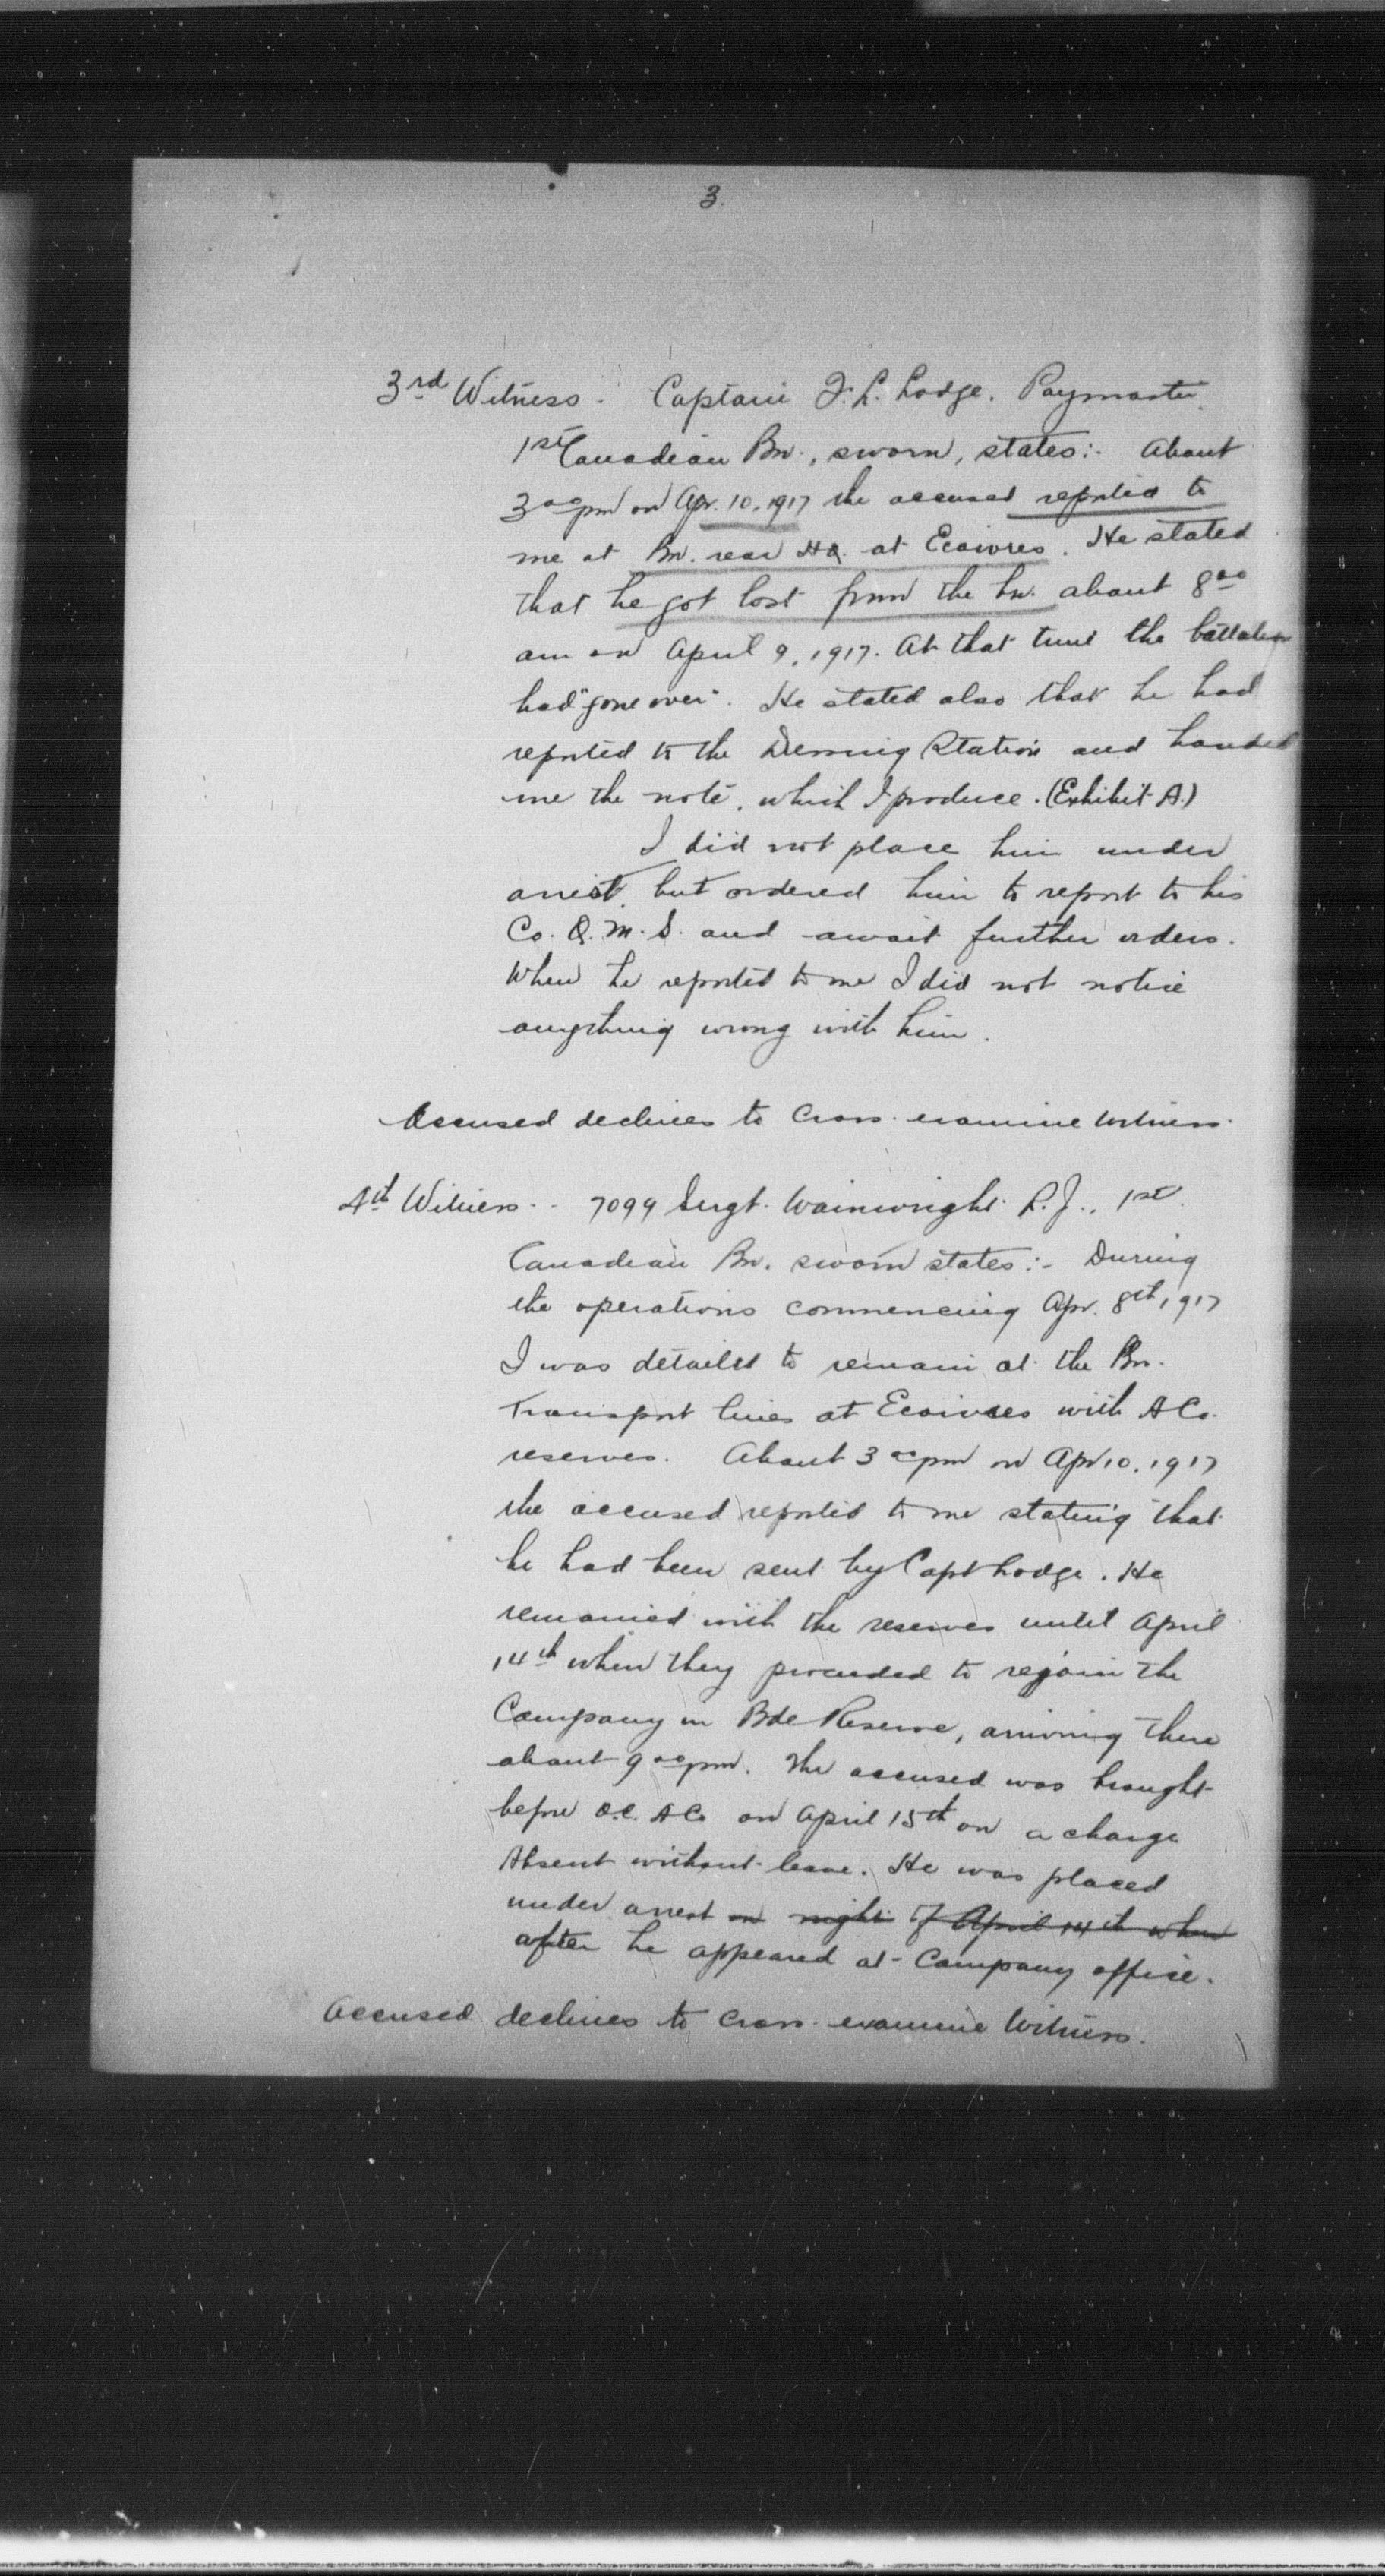 3.
3rd Witness - Captain F. L. Lodge, Paymaster,
1st Canadian Bn., sworn, states:- About
3 00 pm on Apr. 10, 1917 the accused reported to
me at Bn. rear HQ. at Ecoivres. He stated
that he got lost from the bn. about 8 00
am on April 9, 1917. At that time the battalion
had "gone over". He stated also that he had
reported to the Dressing Station and handed
me the note, which I produce. (Exhibit A.)
I did not place him under
arrest, but ordered him to report to his
Co. Q. M. S. and await further orders.
When he reported to me I did not notice
anything wrong with him.
Accused declines to cross-examine witness.
4th Witness - 7099 Sergt. Wainwright R. J., 1st
Canadian Bn. sworn states:- During
the operations commencing Apr. 8th, 1917
I was detailed to remain at the Bn.
Transport lines at Ecoivres with A Co.
reserves. About 3 00 pm on Apr 10, 1917
the accused reported to me stating that
he had been sent by Capt Lodge. He
remained with the reserves until April
14th when they proceeded to rejoin the
Company in Bde Reserve, arriving there
about 9 00 pm. The accused was brought
before O.C. A Co on April 15th on a charge
Absent without leave. He was placed
under arrest on night of April 14th when
after he appeared at Company office.
Accused declines to cross-examine Witness.